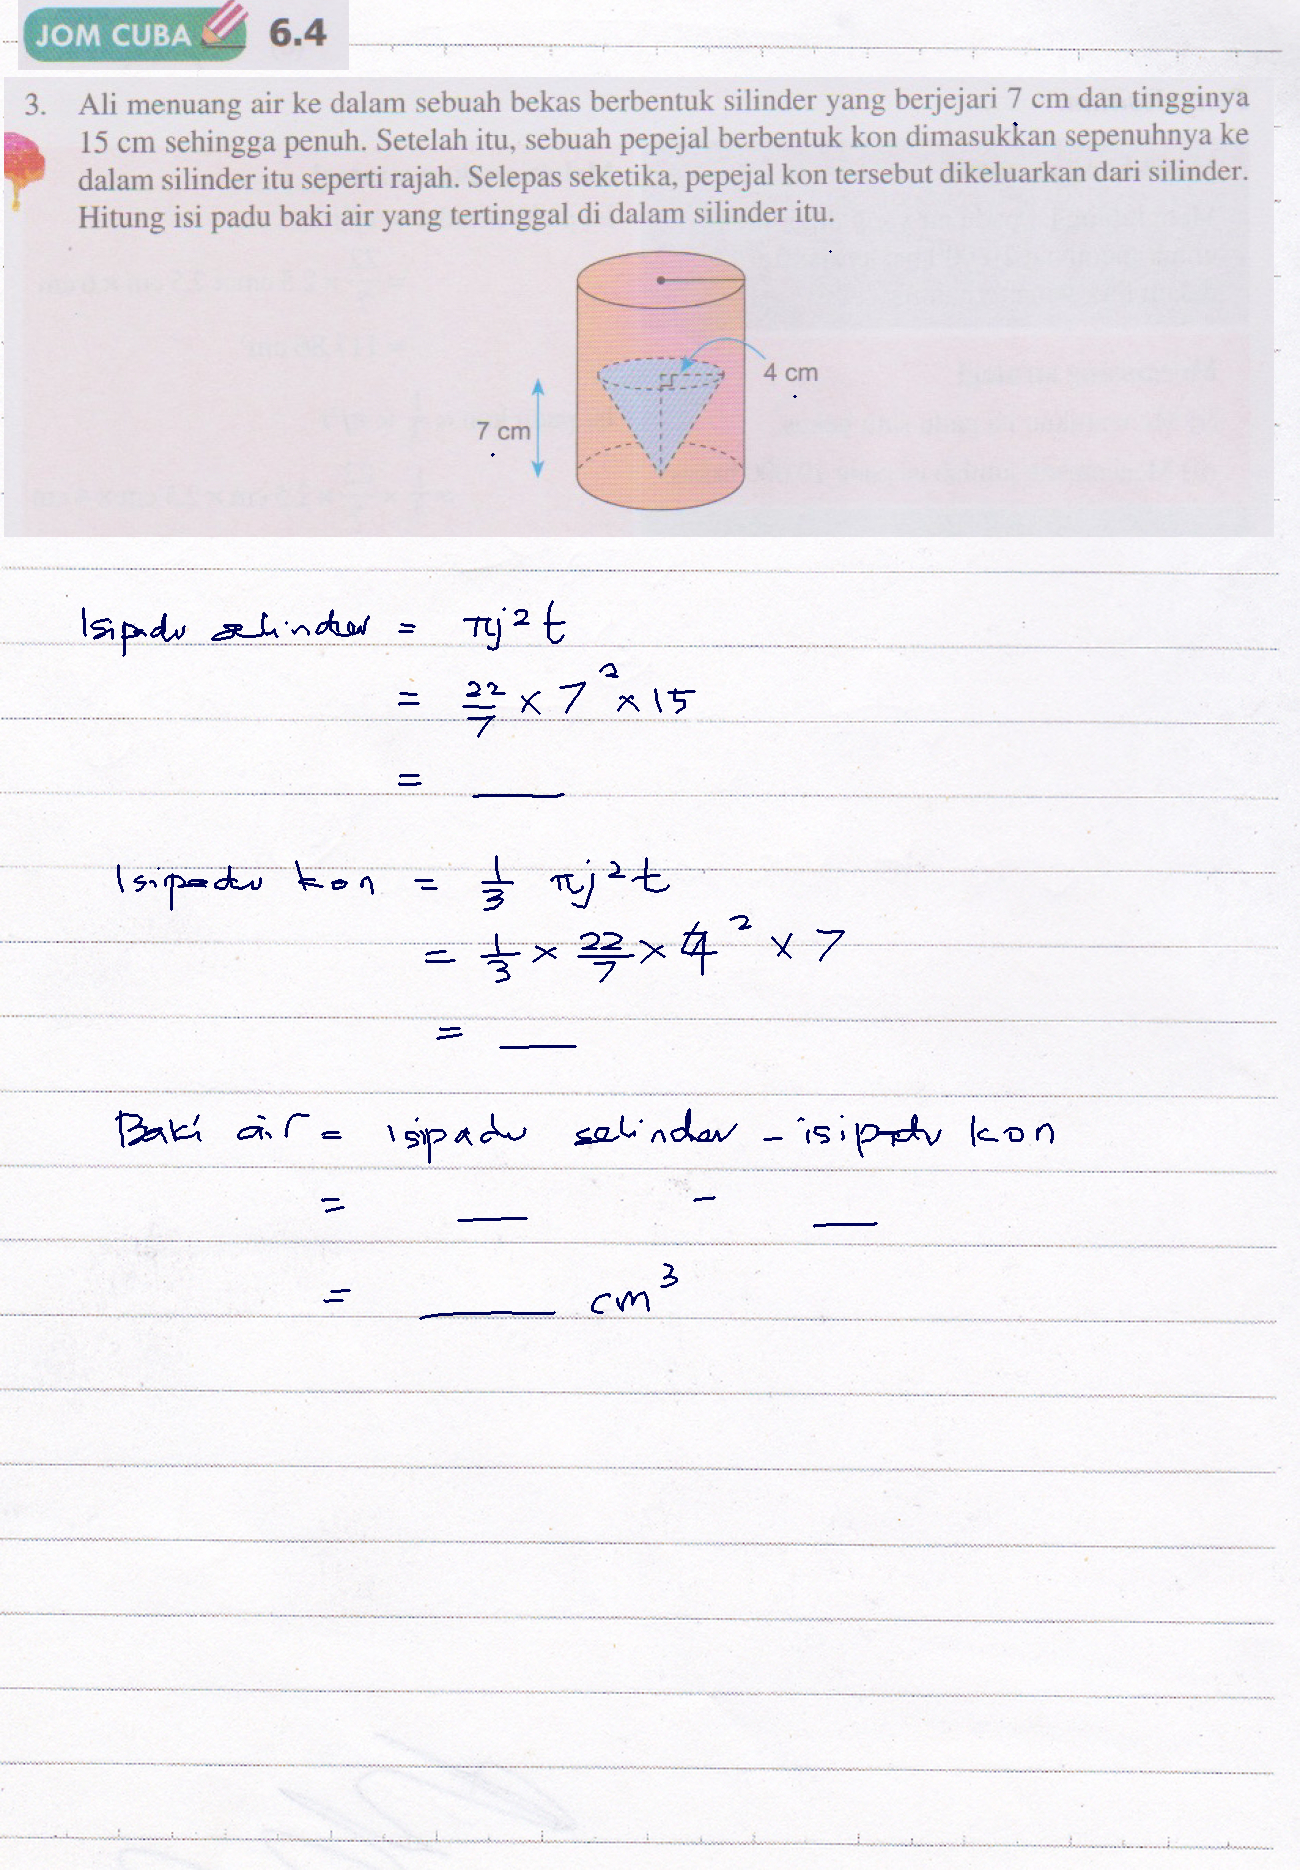 JOM CUBA 6.4
3. Ali menuang air ke dalam sebuah bekas berbentuk silinder yang berjejari 7 cm dan tingginya
15 cm sehingga penuh. Setelah itu, sebuah pepejal berbentuk kon dimasukkan sepenuhnya ke
dalam silinder itu seperti rajah. Selepas seketika, pepejal kon tersebut dikeluarkan dari silinder.
Hitung isi padu baki air yang tertinggal di dalam silinder itu.
4 cm
7 cm
Isipadu selinder = πj²t
= 22/7 × 7² × 15
= ___
Isipadu kon = 1/3 πj²t
= 1/3 × 22/7 × 4² × 7
= ___
Baki air = isipadu selinder - isipadu kon
= ___ - ___
= ___ cm³